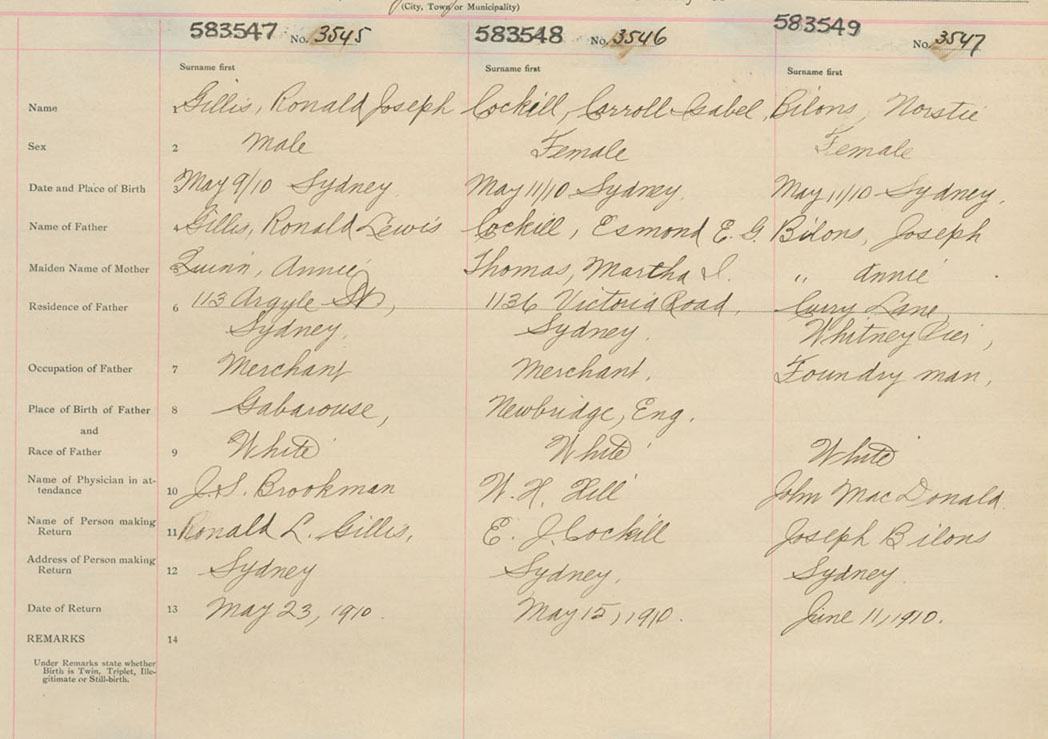 (City, Town or Municipality)
583547 No. 3545 583548 No. 3546 583549 No. 3547
Surname first Surname first Surname first
Name 1 Gillis, Ronald Joseph Cockill, Carroll Isabel, Bilons, Norstie
Sex 2 Male Female Female
Date and Place of Birth May 9/10 Sydney May 11/10 Sydney. May 11/10 Sydney.
Name of Father 4 Gillis, Ronald Lewis Cockill, Esmond E. G. Bilons, Joseph
Maiden Name of Mother Quinn, Annie Thomas, Martha I. " Annie
Residence of Father 6 113 Argyle St, 1136 Victoria Road, Curry Lane,
Sydney. Sydney. Whitney Pier,
Occupation of Father 7 Merchant Merchant. Foundry man,
Place of Birth of Father 8 Gabarouse, Newbridge, Eng.
and
Race of Father 9 White White White
Name of Physician in at- 10 J. S. Brookman W. H. Hill John MacDonald.
tendance
Name of Person making 11 Ronald L. Gillis, E. J. Cockill Joseph Bilons
Return
Address of Person making 12 Sydney Sydney. Sydney.
Return
Date of Return 13 May 23, 1910. May 15, 1910. June 11, 1910.
REMARKS 14
Under Remarks state whether
Birth is Twin, Triplet, Ille-
gitimate or Still-birth.